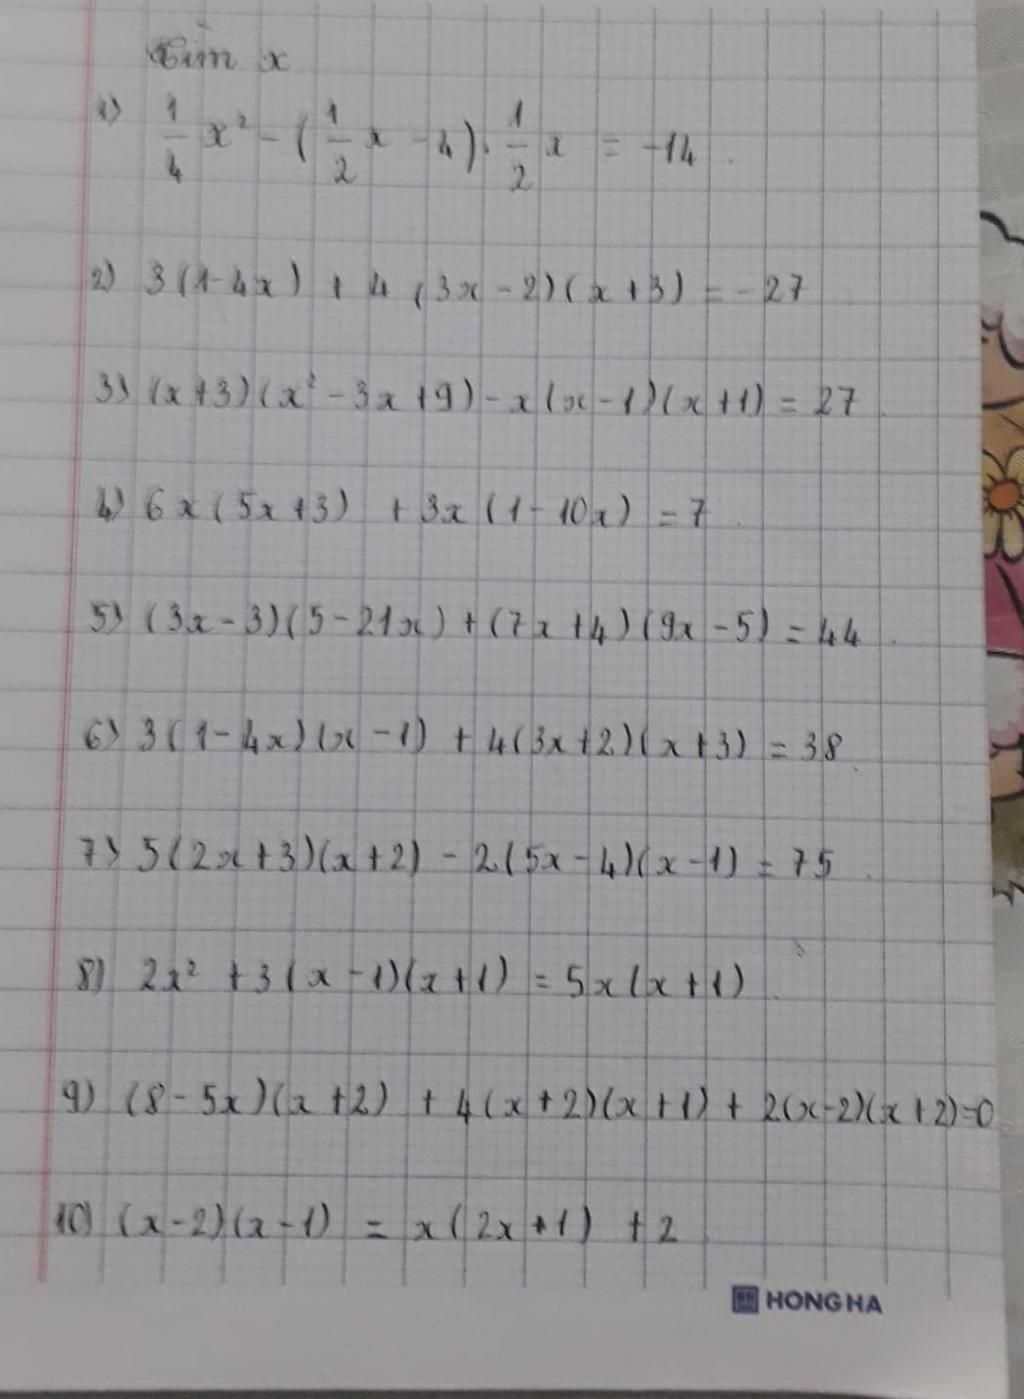 Tìm x
1) 1/4 x² - (1/2 x - 4) . 1/2 x = -14.
2) 3(1-4x) + 4(3x-2)(x+3) = -27
3) (x+3)(x²-3x+9) - x(x-1)(x+1) = 27.
4) 6x(5x+3) + 3x(1-10x) = 7.
5) (3x-3)(5-21x) + (7x+4)(9x-5) = 44.
6) 3(1-4x)(x-1) + 4(3x+2)(x+3) = 38.
7) 5(2x+3)(x+2) - 2(5x-4)(x-1) = 75.
8) 2x² + 3(x-1)(x+1) = 5x(x+1).
9) (8-5x)(x+2) + 4(x+2)(x+1) + 2(x-2)(x+2)=0
10) (x-2)(x-1) = x(2x+1) + 2
HONG HA